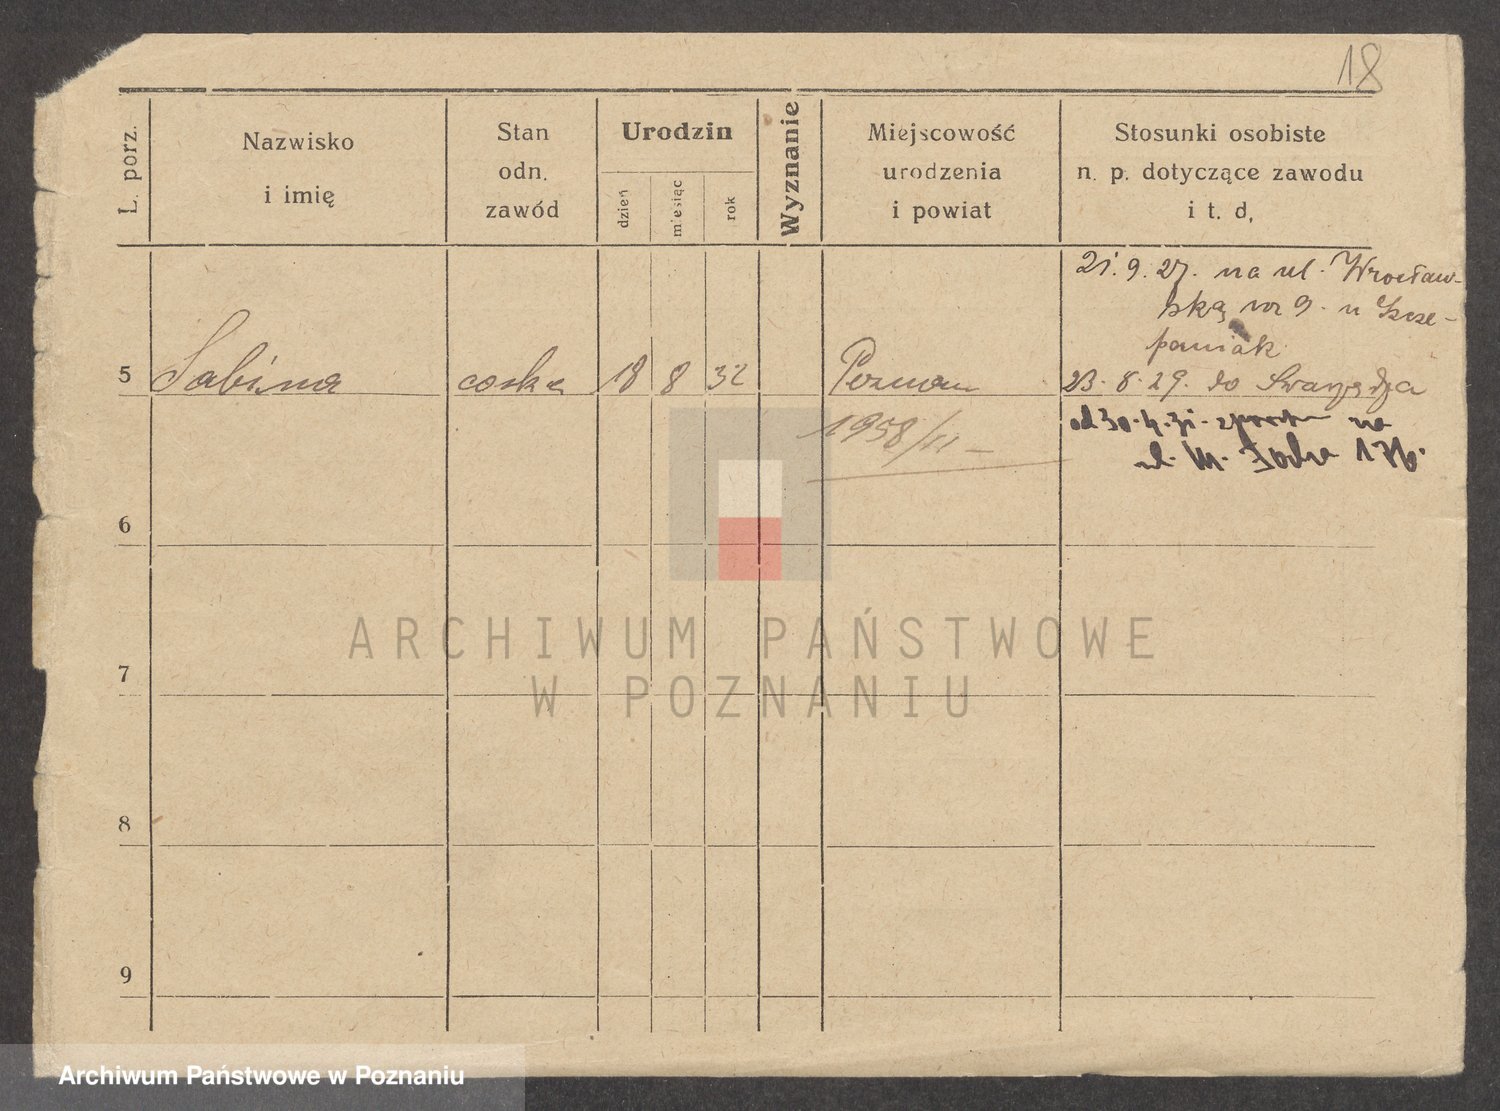 18
L. porz.
Nazwisko
i imię
Stan
odn.
zawód
Urodzin
dzień
miesiąc
rok
Wyznanie
Miejscowość
urodzenia
i powiat
Stosunki osobiste
n. p. dotyczące zawodu
i t. d,
21.9.27. na ul. Wrocław-
ską nr 9. u Szcze-
paniak
5 Sabina córka 18 8 32 Poznań 23.8.29. do Swarzędza
1958/II –
od 30.4.31. na
ul. M. Focha 176.
6
7
8
9
ARCHIWUM PAŃSTWOWE
W POZNANIU
Archiwum Państwowe w Poznaniu